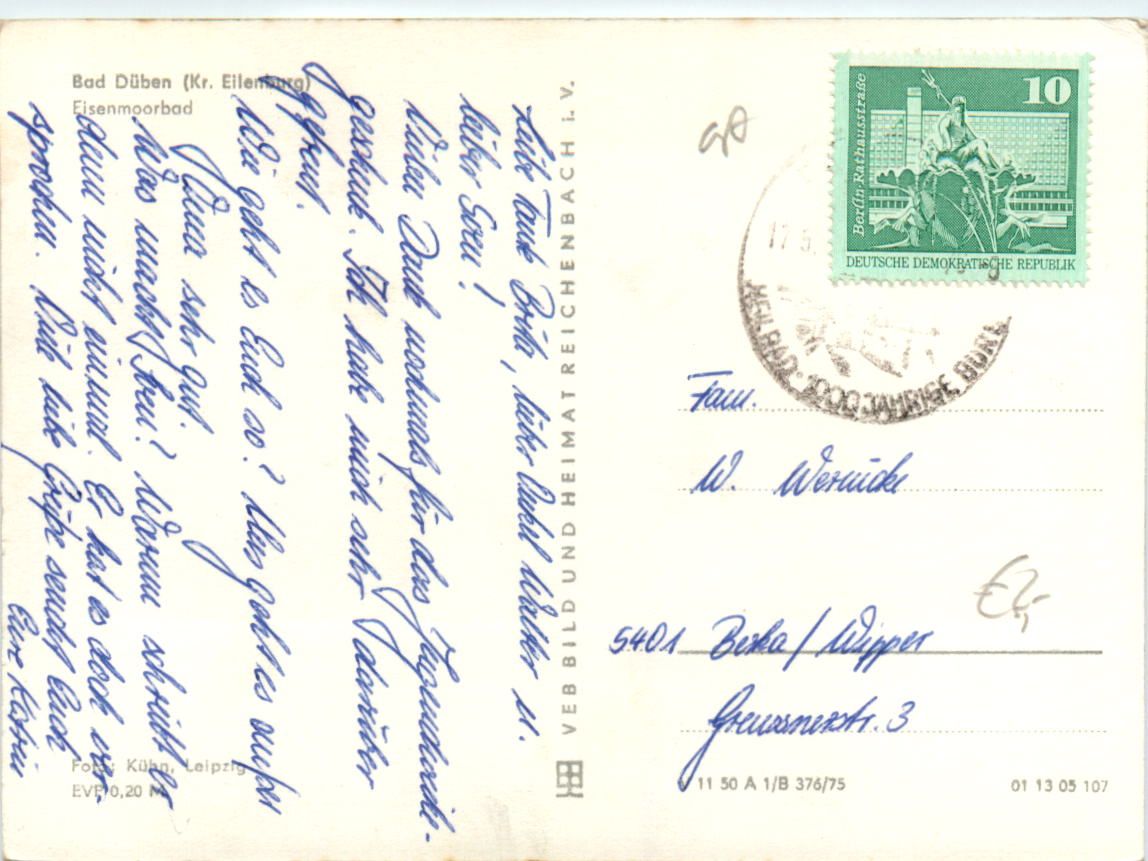 Bad Düben (Kr. Eilenburg)
Eisenmoorbad
Liebe Tante Brita, lieber Onkel Walter u.
lieber Sven!
Vielen Dank nochmals für das Jugendweihe-
geschenk. Ich habe mich sehr darüber
gefreut.
Wie geht es Euch so? Uns geht es außer
Juna sehr gut.
Was macht Sven? Warum schreibt er
denn nicht einmal. Er hat es doch ver-
sprochen. Viele liebe Grüße sendet Euch
Eure Katrin
Foto: Kühn, Leipzig
EVP 0,20 M
VEB BILD UND HEIMAT REICHENBACH i. V.
V 11 50 A 1/B 376/75
01 13 05 107
10
Berlin-Rathausstraße
DEUTSCHE DEMOKRATISCHE REPUBLIK
17.5
HEILBAD · 1000 JÄHRIGE BURG
Fam.
W. Wernicke
5401 Berka/Wipper
Greussnerstr. 3
€2,-